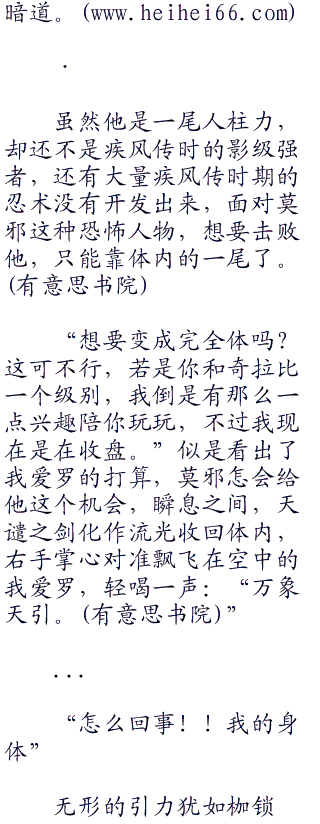 暗道。(www.heihei66.com)
.
虽然他是一尾人柱力，
却还不是疾风传时的影级强
者，还有大量疾风传时期的
忍术没有开发出来，面对莫
邪这种恐怖人物，想要击败
他，只能靠体内的一尾了。
(有意思书院)
“想要变成完全体吗？
这可不行，若是你和奇拉比
一个级别，我倒是有那么一
点兴趣陪你玩玩，不过我现
在是在收盘。”似是看出了
我爱罗的打算，莫邪怎会给
他这个机会，瞬息之间，天
谴之剑化作流光收回体内，
右手掌心对准飘飞在空中的
我爱罗，轻喝一声：“万象
天引。(有意思书院)”
...
“怎么回事！！我的身
体”
无形的引力犹如枷锁